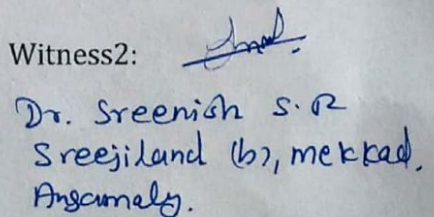 Witness2:
Dr. Sreenish S. R
Sreejiland (h), mekkad.
Angamaly.